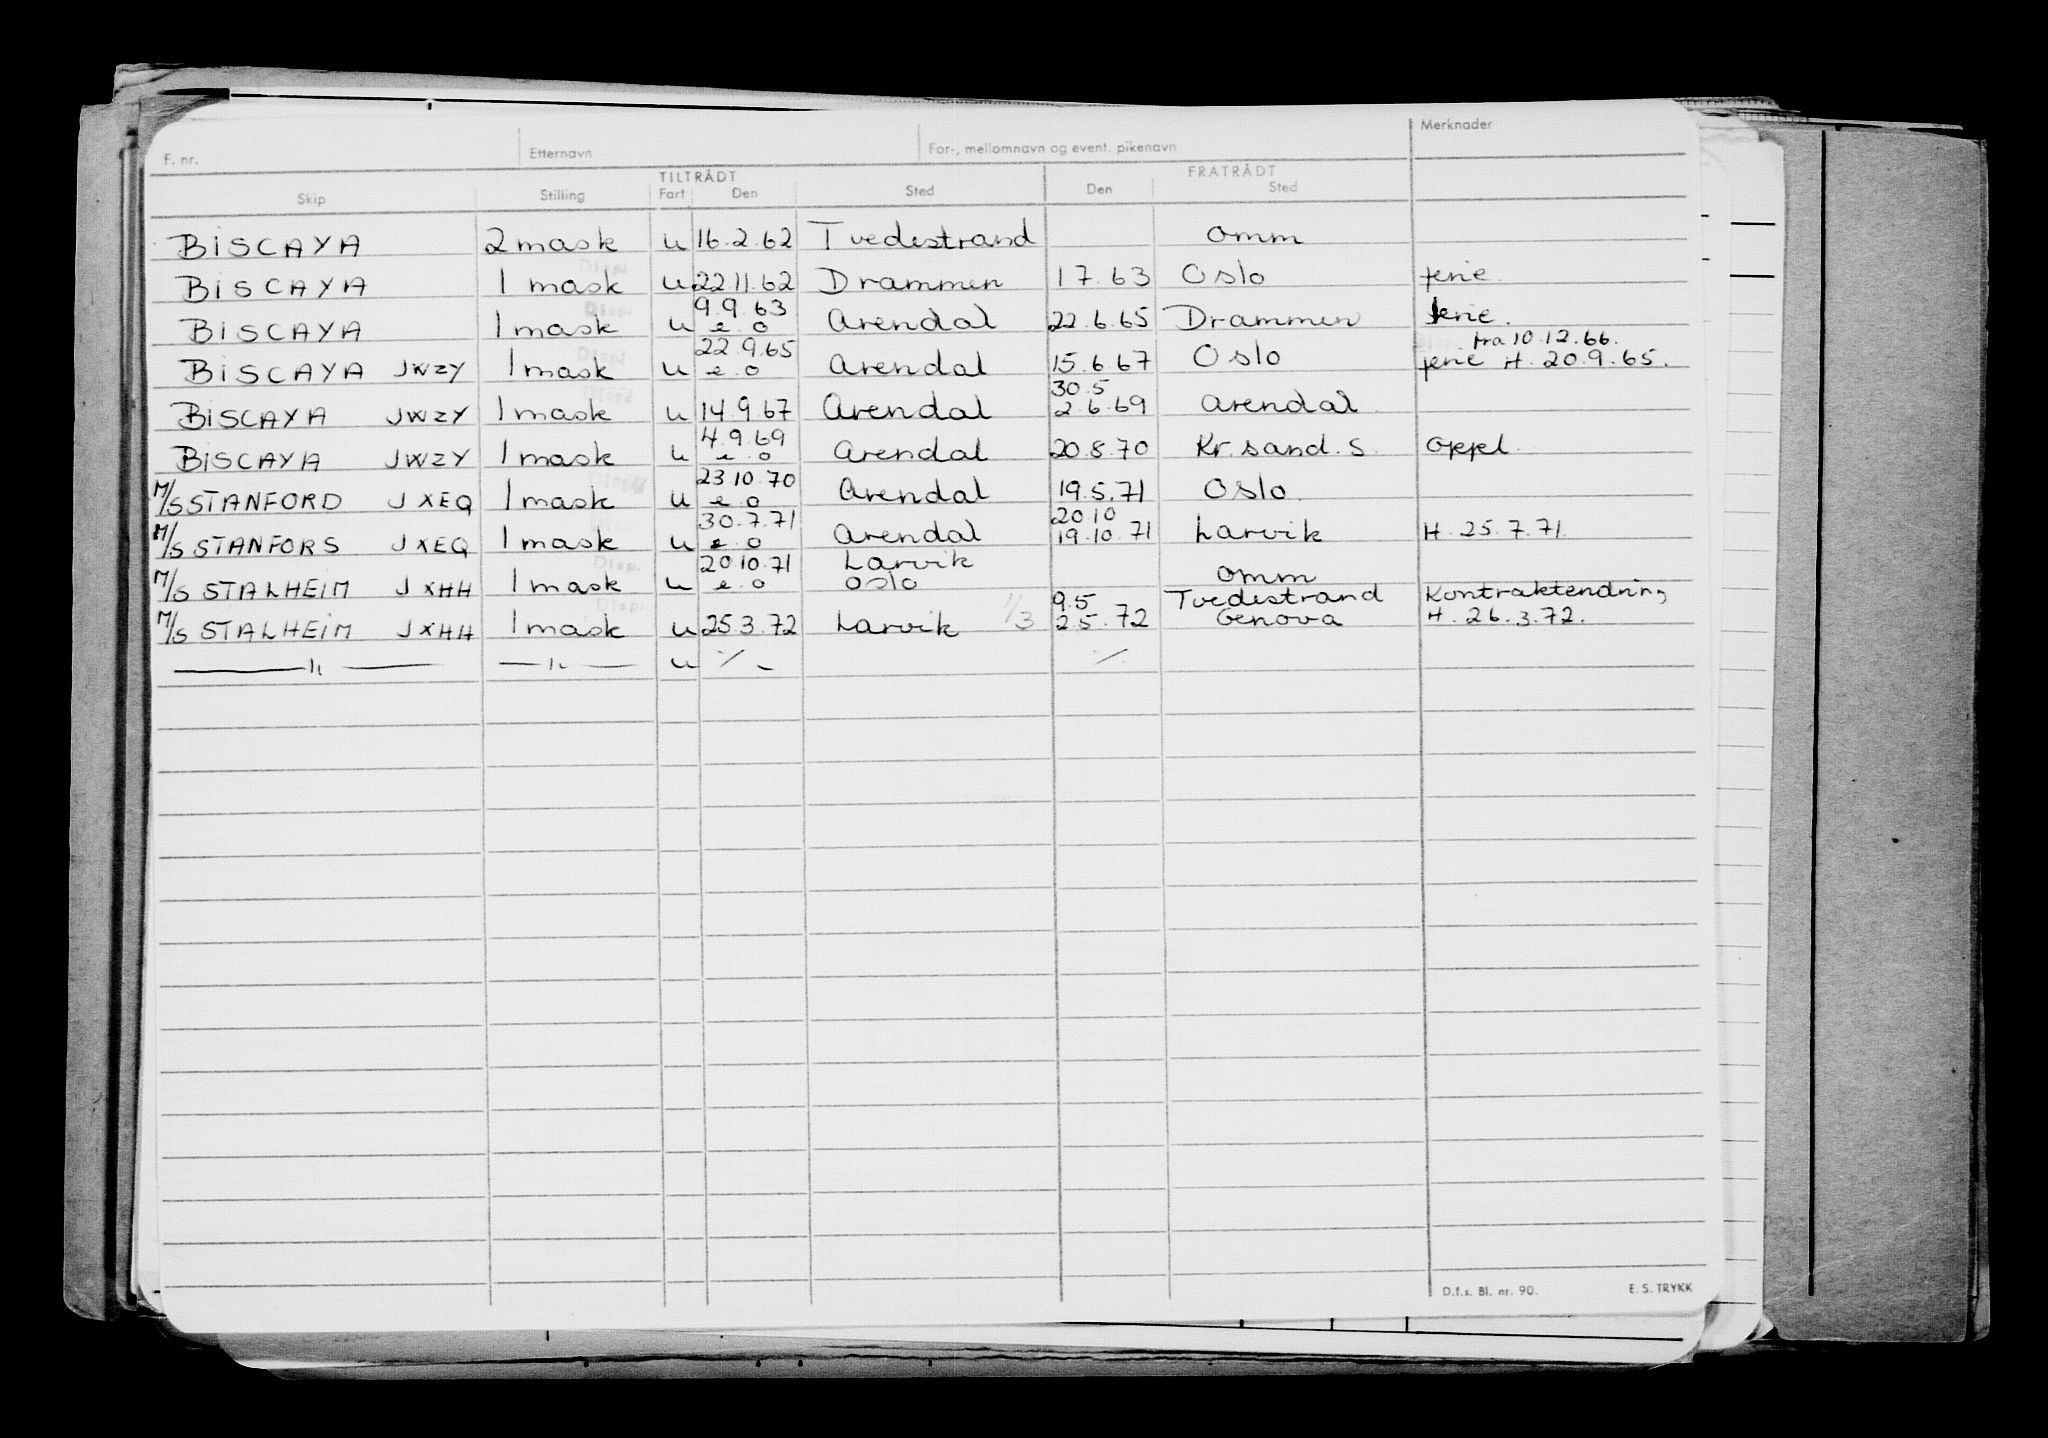 F. nr. Etternavn For-, mellomnavn og event. pikenavn Merknader
TILTRÅDT FRATRÅDT
Skip Stilling Fart Den Sted Den Sted
BISCAYA 2 mask u 16.2.62 Tvedestrand omm
BISCAYA 1 mask u 22.11.62 Drammen 1 7.63 Oslo ferie.
9.9.63
BISCAYA 1 mask u e.o Arendal 22.6.65 Drammen ferie.
22.9.65 fra 10.12.66.
BISCAYA JWZY 1 mask u e.o Arendal 15.6.67 Oslo ferie H. 20.9.65.
30.5
BISCAYA JWZY 1 mask u 14.9.67 Arendal 2.6.69 Arendal
4.9.69
BISCAYA JWZY 1 mask u e.o Arendal 20.8.70 Kr.sand.S.
23 10.70
M/S STANFORD JXEQ 1 mask u e.o Arendal 19.5.71 Oslo.
30.7.71 20 10
M/S STANFORS JXEQ 1 mask u e.o Arendal 19.10.71 Larvik H. 25.7.71.
20 10.71 Larvik
M/S STALHEIM JXHH 1 mask u e.o Oslo omm
9.5 Tvedestrand Kontraktendring
M/S STALHEIM JXHH 1 mask u 25 3.72 Larvik 1/3 2.5.72 Genova H. 26.3.72.
—"— —"— u ./. ./.
D.f.s. Bl. nr. 90. E. S. TRYKK